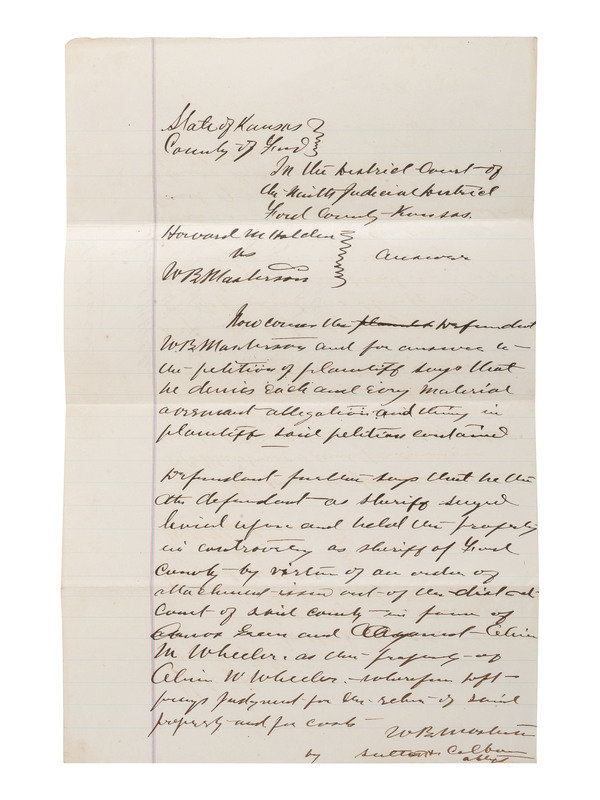 State of Kansas
County of Ford
In the District Court of
the Ninth Judicial District
Ford County Kansas.
Howard M Holden
vs
Answer
W B Masterson
Now comes the Defendant
W B Masterson and for answer to
the petition of plaintiff says that
he denies Each and Every material
averment allegation and thing in
plaintiffs said petition contained
Defendant further says that he the
the defendant as sheriff seized
levied upon and held the property
in controversy as sheriff of Ford
County by virtue of an order of
attachment issued out of the district
Court of said county in favor of
Green and Against Alvin
M Wheeler. as the property of
Alvin W Wheeler. wherefore deft
prays Judgment for the return of said
property and for costs
W B Masterson
by Sutton & Colborn
attys